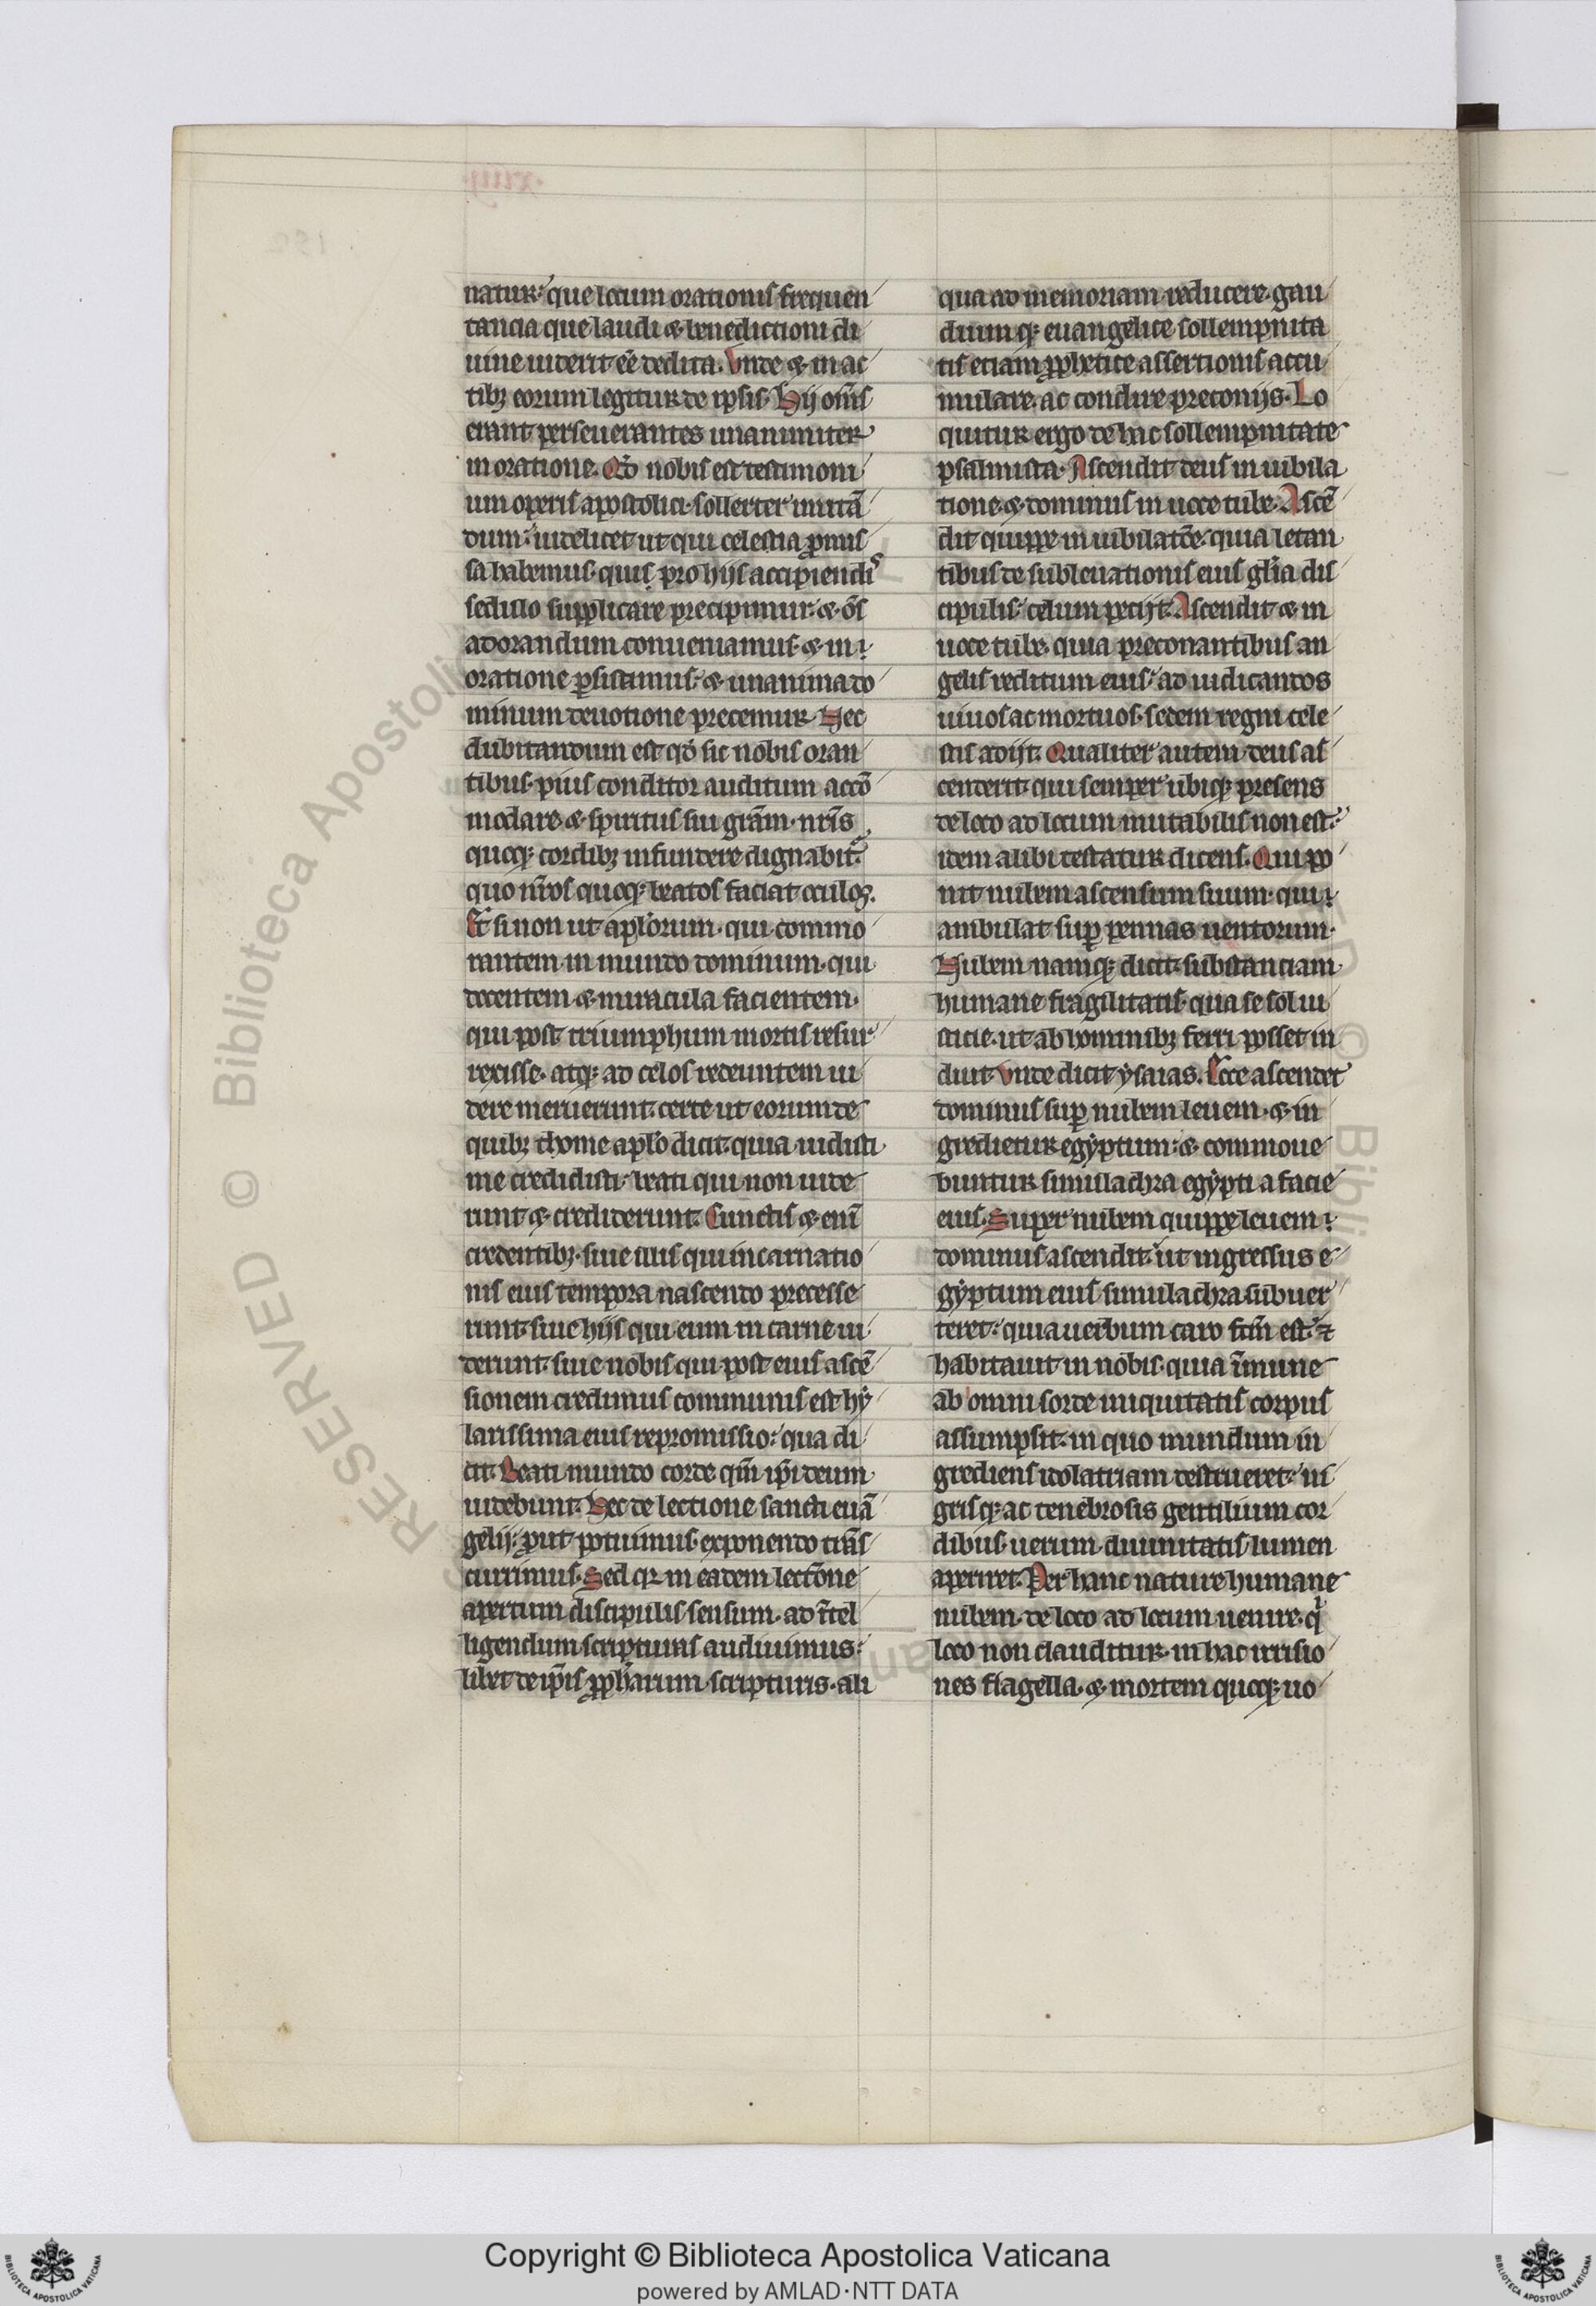 natur: que locum orationis frequen
tancia que laudi & benedictioni di
uine uiderit ee᷒ dedita. Vnde & in ac
tibꝫ eorum legitur de ipsis. Hij om̅s
erant perseuerantes unanimiter
in oratione. Qd̅ nobis est testimoni
um operis apostolici. sollerter imitā
dum: uidelicet ut qui celestia ꝓmis
sa habemus. quis pro hijs accipiendis
sedulo supplicare precipimur. & om̅s
ad orandum conueniamus. & in
oratione ꝑsistamus: & unanima do
minum deuotione precemur. Nec
dubitandum est qd̅ sic nobis oran
tibus. pius conditor auditum accō
modare. & spiritus sui gr̅am. nr̅is
quoqꝫ cordibꝫ infundere dignabit᷑.
quo nr̅os quoqꝫ beatos faciat oculos.
Et si non ut apl̅orum. qui commo
rantem in mundo dominum. qui
docentem & miracula facientem.
qui post triumphum mortis resur
rexisse. atqꝫ ad celos redeuntem ui
dere meruerunt. certe ut eorum de
quibꝫ thome apl̅o dicit. quia uidisti
me credidisti. beati qui non uide
runt & crediderunt. Cunctis & eni̅
credentibꝫ. siue illis qui incarnatio
nis eius tempora nascendo precesse
runt. siue hijs qui eum in carne ui
derunt. siue nobis qui post eius ascē
sionem credimus communis est hy
larissima eius repromissio: qua di
cit. Beati mundo corde qm̅ ip̅i deum
uidebunt. Hec de lectione sancti euā
gelij: ꝓut potuimus exponendo tra̅s
currimus. Sed qꝛ in eadem lectōne
apertum discipulis sensum. ad ītel
ligendum scripturas audiuimus:
libet de ip̅is ꝓph̅arum scripturis. ali
qua ad memoriam reducere. gau
diumqꝫ euangelice sollempnita
tis etiam ꝓphetice assertionis accu
mulare. ac condire preconijs. Lo
quitur ergo de hac sollempnitate
psalmista. Ascendit deus in iubila
tione. & dominus in uoce tube. Ascē
dit quippe in iubilatōe. quia letan
tibus de subleuationis eius gl̅ia dis
cipulis: celum petijt. Ascendit & in
uoce tube. quia preconantibus an
gelis reditum eius: ad iudicandos
uiuos ac mortuos. sedem regni cele
stis adijt. Qualiter autem deus as
cenderit. qui semper ubiqꝫ presens
de loco ad locum mutabilis non est:
idem alibi testatur dicens. Qui po
nit nubem ascensum suum. qui
ambulat suꝑ pennas uentorum.
Nubem namqꝫ dicit. substanciam
humane fragilitatis. qua se sol iu
sticie. ut ab hominibꝫ ferri posset in
duit. Vnde dicit ysaias. Ecce ascendet
dominus suꝑ nubem leuem. & in
gredietur egyptum: & commoue
buntur simulachra egypti a facie
eius. Super nubem quippe leuem
dominus ascendit. ut ingressus e
gyptum eius simulachra subuer
teret: quia uerbum caro fcm̅ est. ⁊
habitauit in nobis. quia īmune
ab omni sorde iniquitatis corpus
assumpsit. in quo mundum in
grediens idolatriam destrueret: ni
grisqꝫ ac tenebrosis gentilium cor
dibus. uerum diuinitatis lumen
aperiret. Per hanc nature humane
nubem. de loco ad locum uenire. qͥ
loco non clauditur. in hac irrisio
nes flagella. & mortem quoqꝫ uo
Copyright © Biblioteca Apostolica Vaticana
powered by AMLAD·NTT DATA